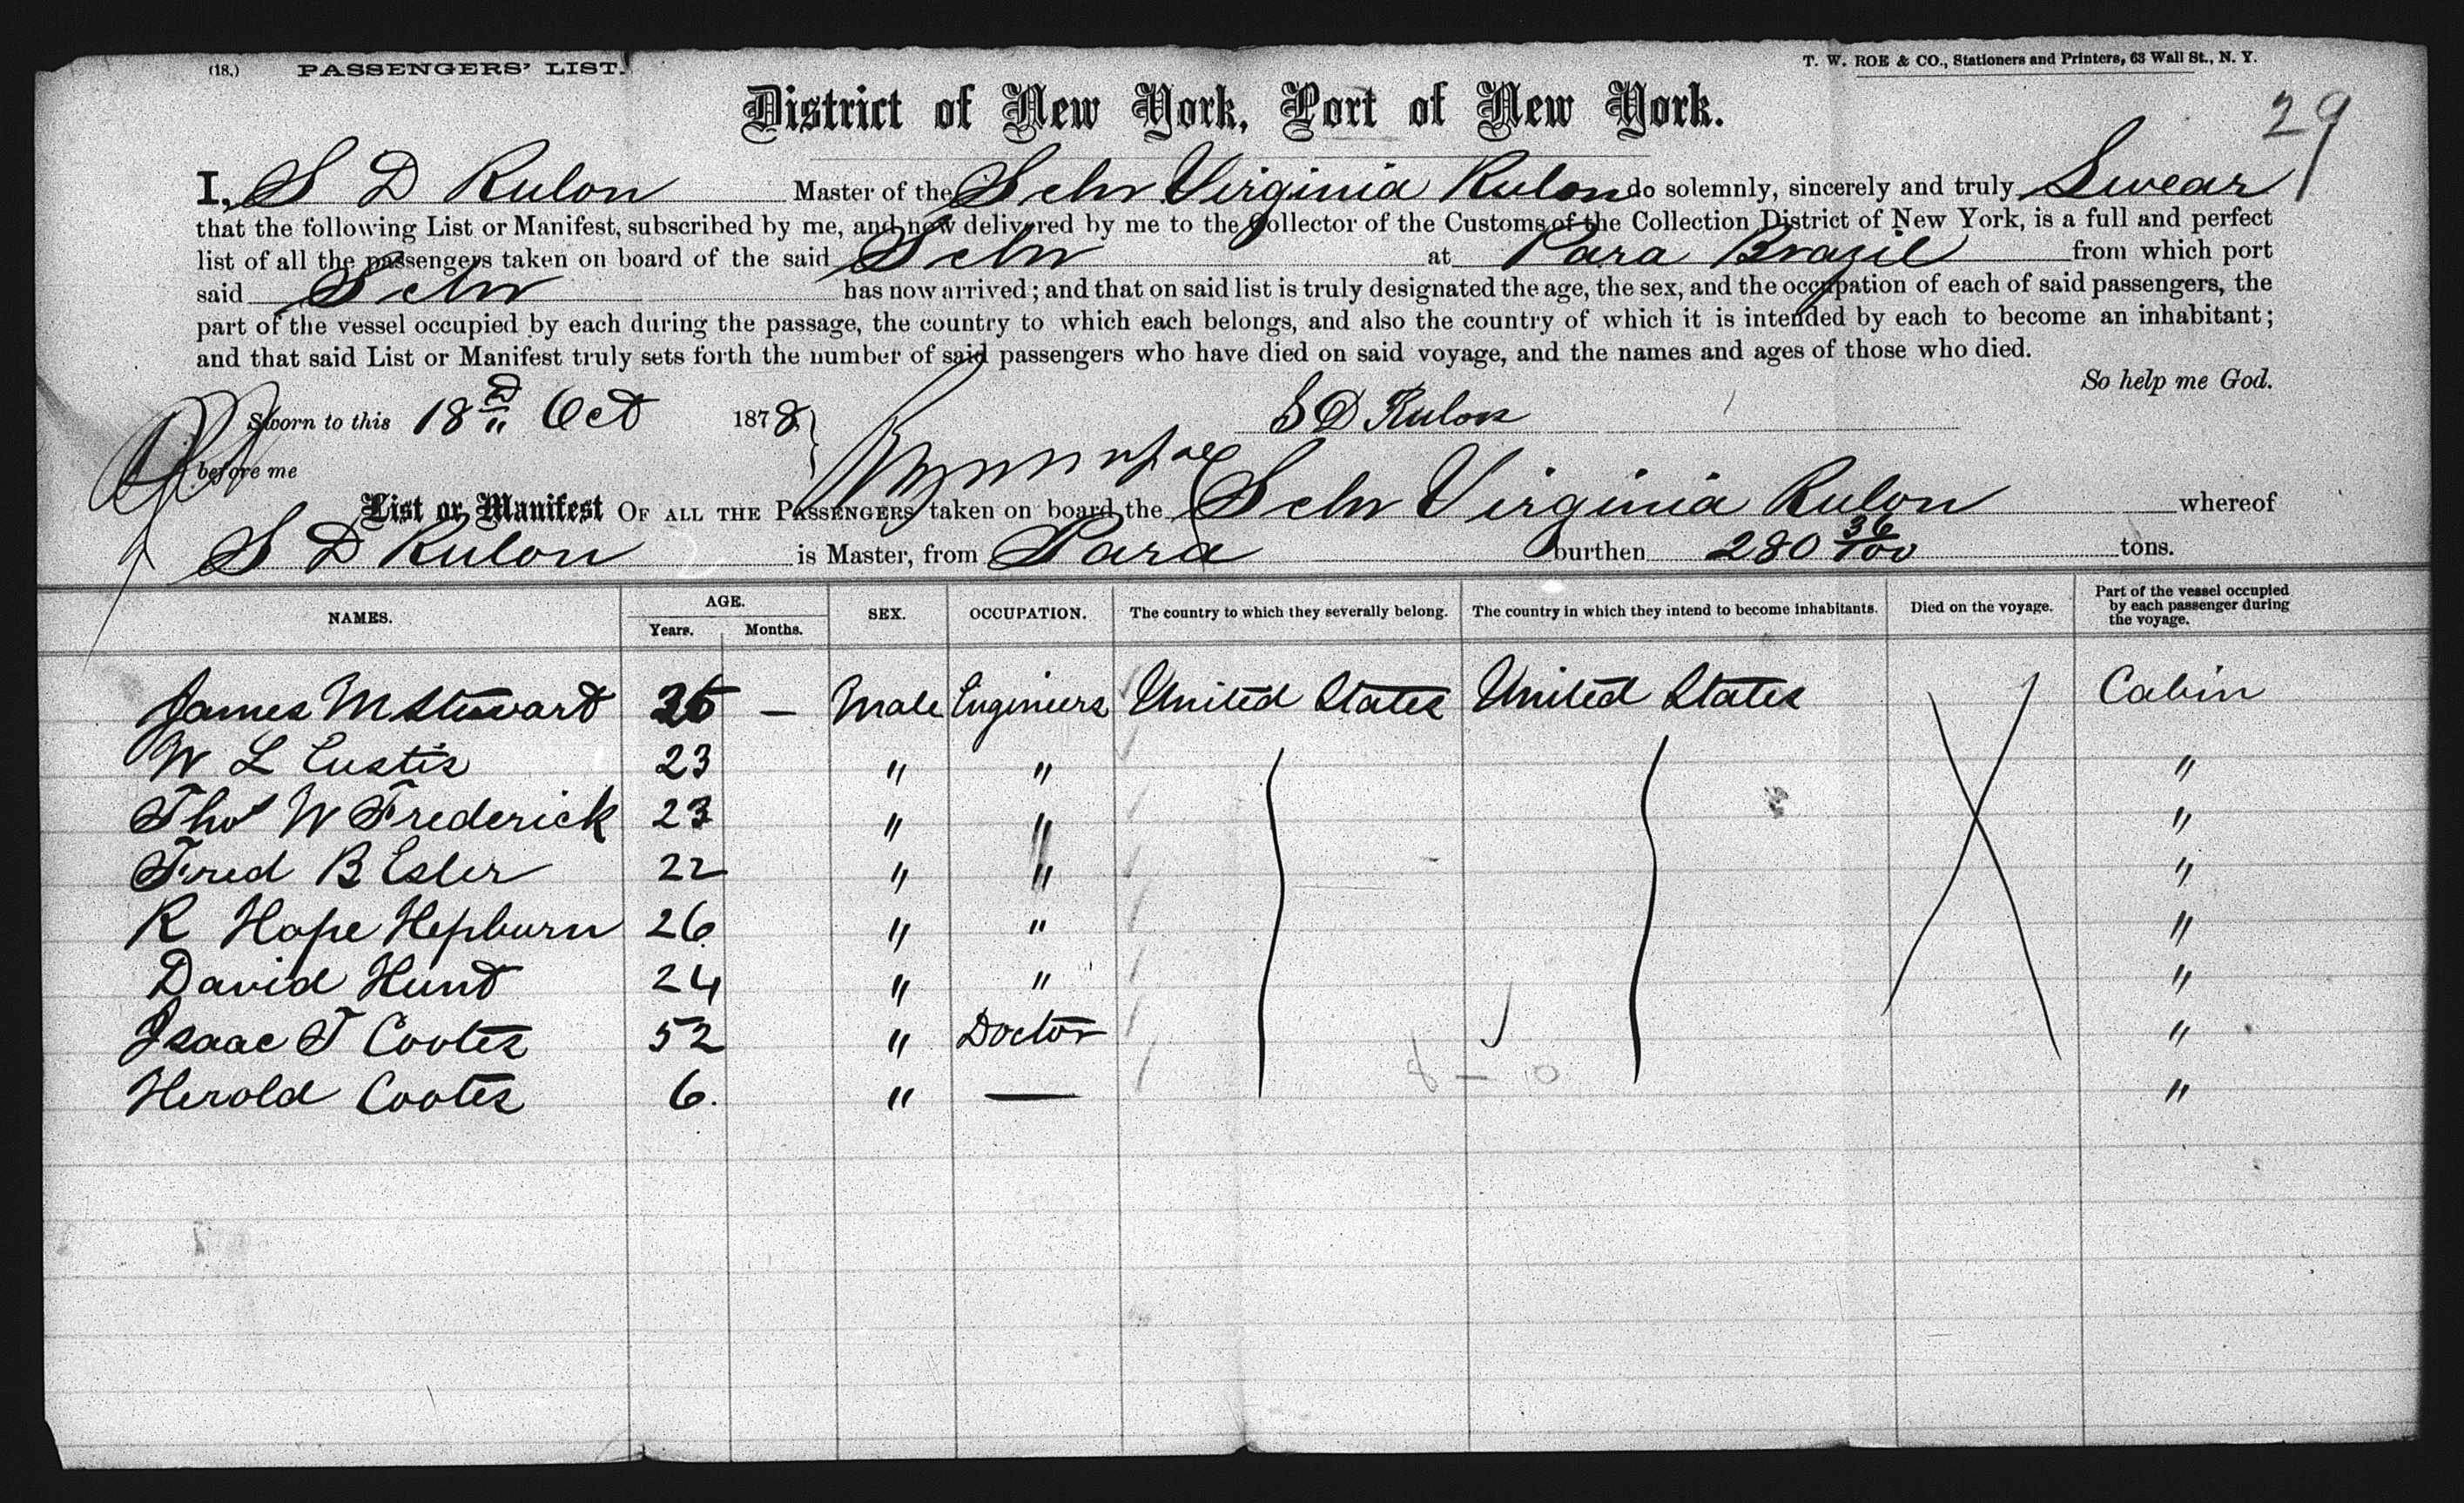 (18.) PASSENGERS' LIST. T. W. ROE & CO., Stationers and Printers, 63 Wall St., N. Y.
29
District of New York, Port of New York.
I, S D Rulon Master of the Schr Virginia Rulon do solemnly, sincerely and truly Swear
that the following List or Manifest, subscribed by me, and now delivered by me to the Collector of the Customs of the Collection District of New York, is a full and perfect
list of all the passengers taken on board of the said Schr at Para Brazil from which port
said Schr has now arrived; and that on said list is truly designated the age, the sex, and the occupation of each of said passengers, the
part of the vessel occupied by each during the passage, the country to which each belongs, and also the country of which it is intended by each to become an inhabitant;
and that said List or Manifest truly sets forth the number of said passengers who have died on said voyage, and the names and ages of those who died.
So help me God.
Sworn to this 18 Oct 1878 S D Rulon
before me
List or Manifest OF ALL THE PASSENGERS taken on board the Schr Virginia Rulon whereof
S D Rulon is Master, from Para burthen 280 36/100 tons.
NAMES. AGE. Years. Months. SEX. OCCUPATION. The country to which they severally belong. The country in which they intend to become inhabitants. Died on the voyage. Part of the vessel occupied by each passenger during the voyage.
James M Stewart — Male Engineers United States United States Cabin
W L Eustis 23 " " "
Thos W Frederick 23 " " "
Fred B Esler 22 " " "
R Hope Hepburn 26 " " "
David Hunt 24 " " "
Isaac T Coates 52 " Doctor "
Herold Coates 6. " — "
8 — 0